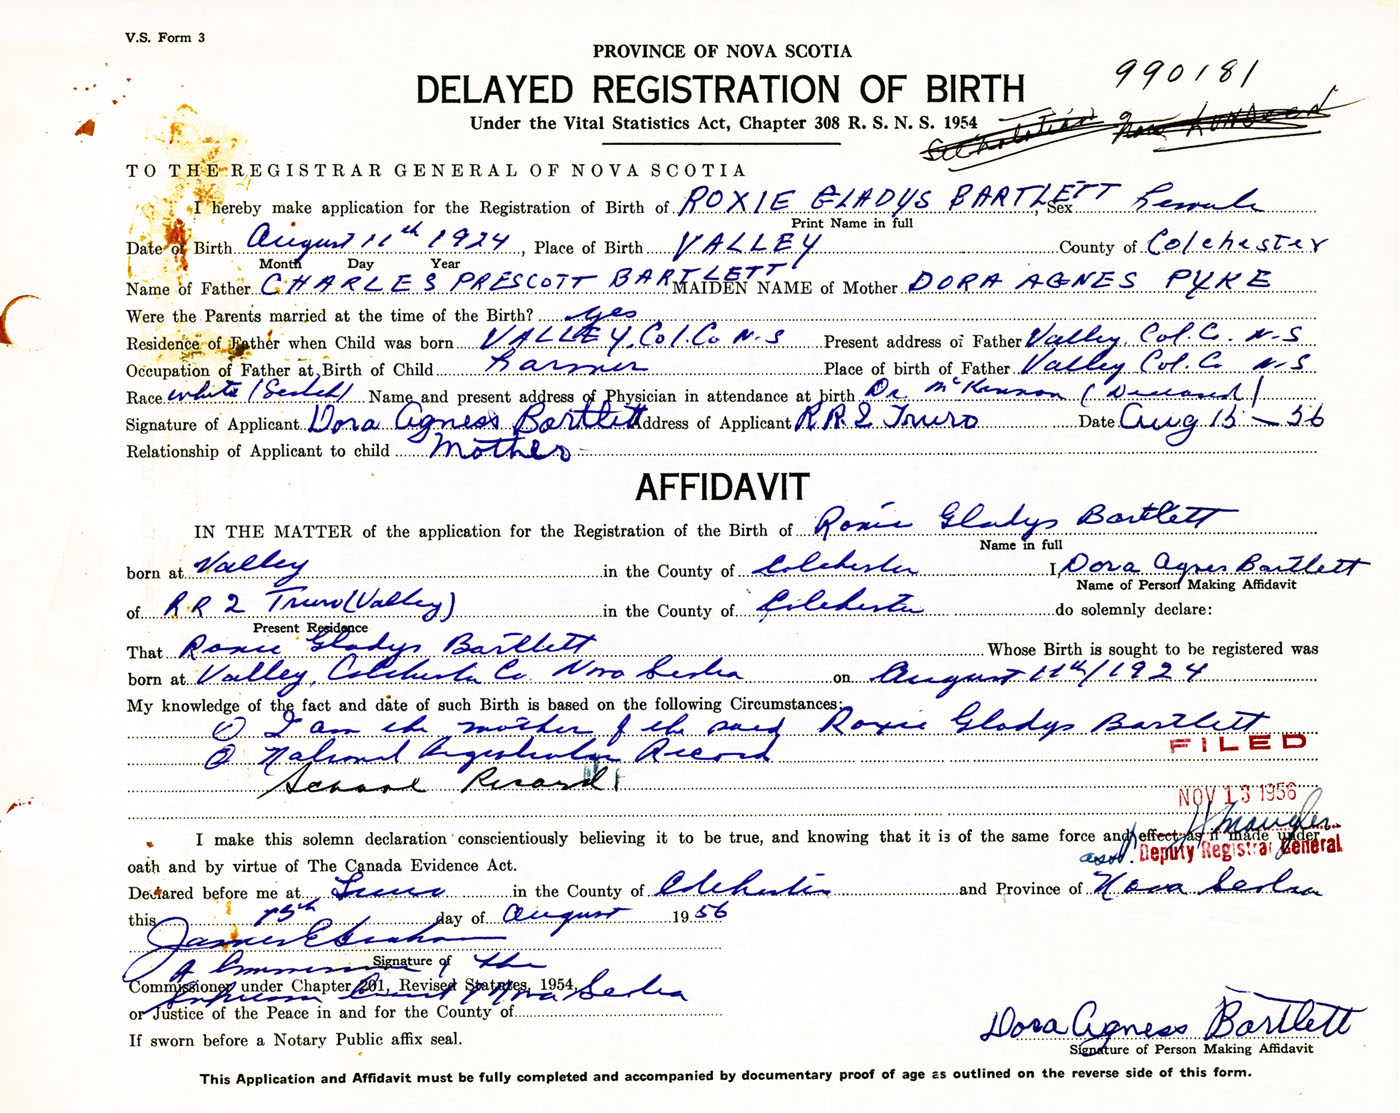 V.S. Form 3
PROVINCE OF NOVA SCOTIA
990181
DELAYED REGISTRATION OF BIRTH
Under the Vital Statistics Act, Chapter 308 R. S. N. S. 1954
TO THE REGISTRAR GENERAL OF NOVA SCOTIA
I hereby make application for the Registration of Birth of ROXIE GLADYS BARTLETT, Sex Female
Print Name in full
Date of Birth August 11th 1924, Place of Birth VALLEY County of Colchester
Month Day Year
Name of Father CHARLES PRESCOTT BARTLETT MAIDEN NAME of Mother DORA AGNES PYKE
Were the Parents married at the time of the Birth? yes
Residence of Father when Child was born VALLEY, Col. Co N-S Present address of Father Valley, Col. Co. N-S
Occupation of Father at Birth of Child Farmer Place of birth of Father Valley Col. Co N-S
Race white (Scotch) Name and present address of Physician in attendance at birth Dr. (Deceased)
Signature of Applicant Dora Agness Bartlett Address of Applicant RR2 Truro Date Aug 15-56
Relationship of Applicant to child Mother
AFFIDAVIT
IN THE MATTER of the application for the Registration of the Birth of Roxie Gladys Bartlett
Name in full
born at Valley in the County of Colchester I, Dora Agnes Bartlett
Name of Person Making Affidavit
of RR2 Truro (Valley) in the County of Colchester do solemnly declare:
Present Residence
That Roxie Gladys Bartlett Whose Birth is sought to be registered was
born at Valley, Colchester Co Nova Scotia on August 11th/1924
My knowledge of the fact and date of such Birth is based on the following Circumstances:
① I am the mother of the said Roxie Gladys Bartlett
② National Registration Record
FILED
School Record
NOV 13 1956
I make this solemn declaration conscientiously believing it to be true, and knowing that it is of the same force and effect as if made under
asst. Deputy Registrar General
oath and by virtue of The Canada Evidence Act.
Declared before me at Truro in the County of Colchester and Province of Nova Scotia
this 15th day of August 1956
James E Graham
Signature of
A Commissioner of the
Commissioner under Chapter 201, Revised Statutes, 1954,
Supreme Court Nova Scotia
or Justice of the Peace in and for the County of
Dora Agness Bartlett
If sworn before a Notary Public affix seal.
Signature of Person Making Affidavit
This Application and Affidavit must be fully completed and accompanied by documentary proof of age as outlined on the reverse side of this form.